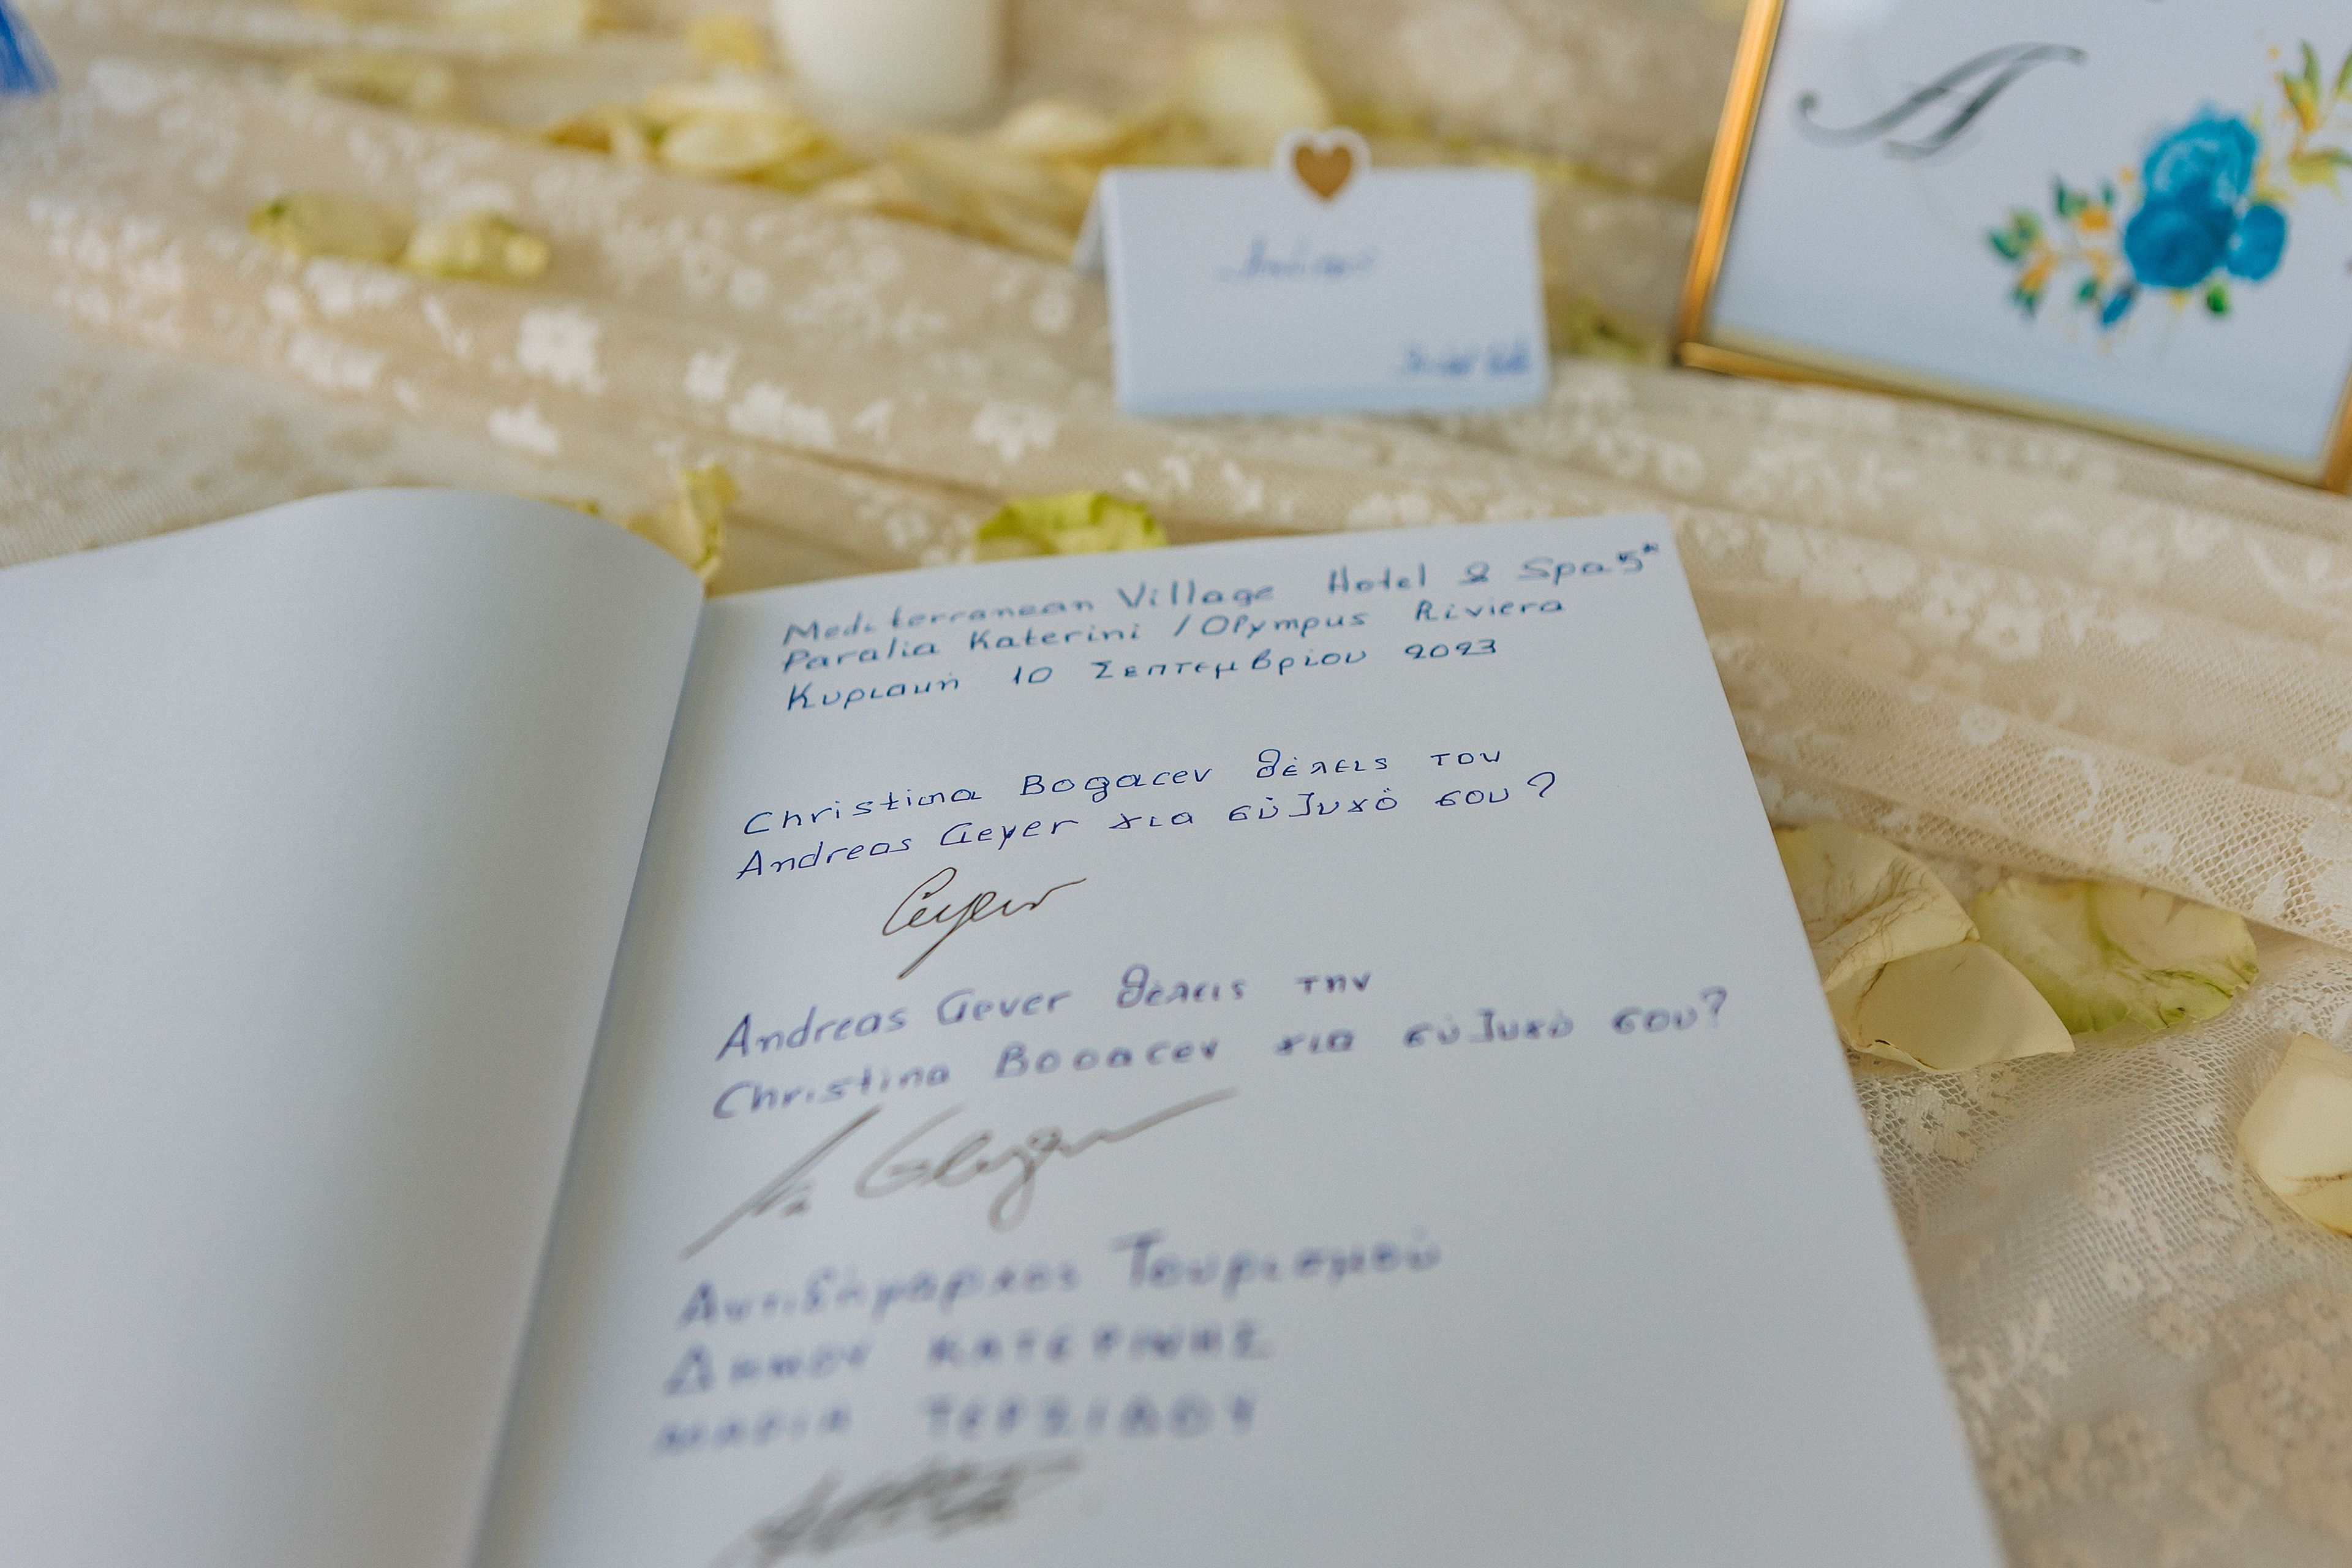 A
Mediterranean Village Hotel & Spa 5*
Paralia Katerini / Olympus Riviera
Κυριακή 10 Σεπτεμβρίου 2023
Christina Bogacev θέλεις τον
Andreas Geyer για σύζυγό σου?
Geyer
Andreas Geyer θέλεις την
Christina Bogacev για σύζυγό σου?
Geyer
Αντιδήμαρχος Τουρισμού
ΔΗΜΟΥ ΚΑΤΕΡΙΝΗΣ
ΜΑΡΙΑ ΤΕΡΖΙΔΟΥ